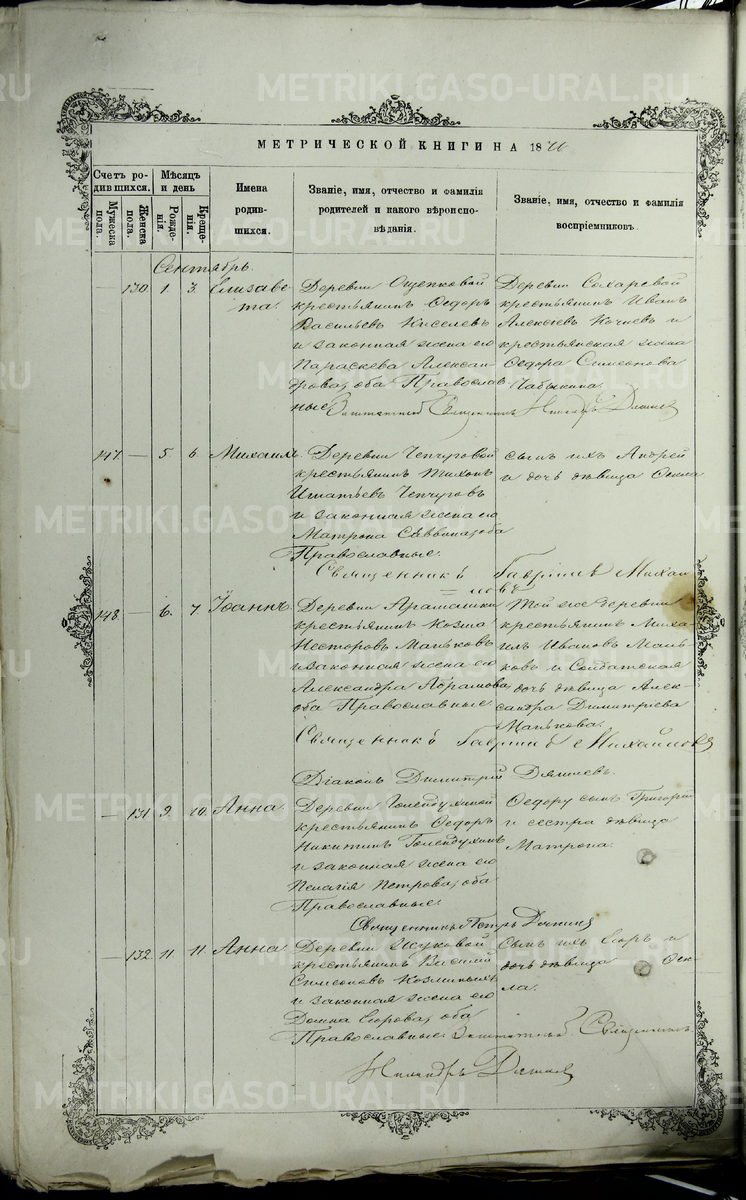 METRIKI.GASO-URAL.RU
МЕТРИЧЕСКОЙ КНИГИ НА 18
Счетъ ро-
дившихся.
Мужеска
пола.
Женска
пола.
Мѣсяцъ
и день
Рожде-
нія.
Креще-
нія.
Имена
родив-
шихся.
Званіе, имя, отчество и фамилія
родителей и какого вѣроиспо-
вѣданія.
Званіе, имя, отчество и фамилія
воспріемниковъ.
Сентябрь.
— 130. 1. 3. Елизаве-
та.
Деревни Ощепковой
крестьянинъ Ѳедоръ
Васильевъ Киселевъ
и законная жена его
Параскева Алексан-
дрова, оба Православ
ные.
Деревни Сохаревой
крестьянинъ Иванъ
Алексѣевъ Кочневъ и
крестьянская жена
Ѳедора Симеонова
Чабыкина.
Заштатный Священникъ
147. — 5. 6. Михаилъ.
Деревни Чепчуговой
крестьянинъ Тихонъ
Игнатьевъ Чепчуговъ
и законная жена его
Матрона Саввина, оба
Православные.
сынъ ихъ Андрей
и дочь дѣвица
Священникъ Гавріилъ Михаи
=ловъ
148. — 6. 7. Іоаннъ.
Деревни Арамашки
крестьянинъ Козма
Несторовъ Маньковъ
и законная жена его
Александра Абрамова
оба Православные
Той же деревни
крестьянинъ Миха-
илъ Ивановъ Мань-
ковъ и Солдатская
дочь дѣвица Алек-
сандра Димитріева
Манькова.
Священникъ Гавріилъ Михайловъ
Діаконъ Димитрій Дягилевъ.
— 131. 9. 10. Анна.
Деревни Голендухиной
крестьянинъ Ѳедоръ
Никитинъ Голендухинъ
и законная жена его
Пелагія Петрова, оба
Православные.
Ѳедору сынъ Григорій
и сестра дѣвица
Матрона.
Священникъ Петръ
— 132. 11. 11. Анна.
Деревни Жуковой
крестьянинъ Василій
Симеоновъ Козминыхъ
и законная жена его
Домна Егорова, оба
Православные.
Сынъ ихъ Егоръ и
дочь дѣвица Ѳек-
ла.
Заштатный Священникъ
Никандръ